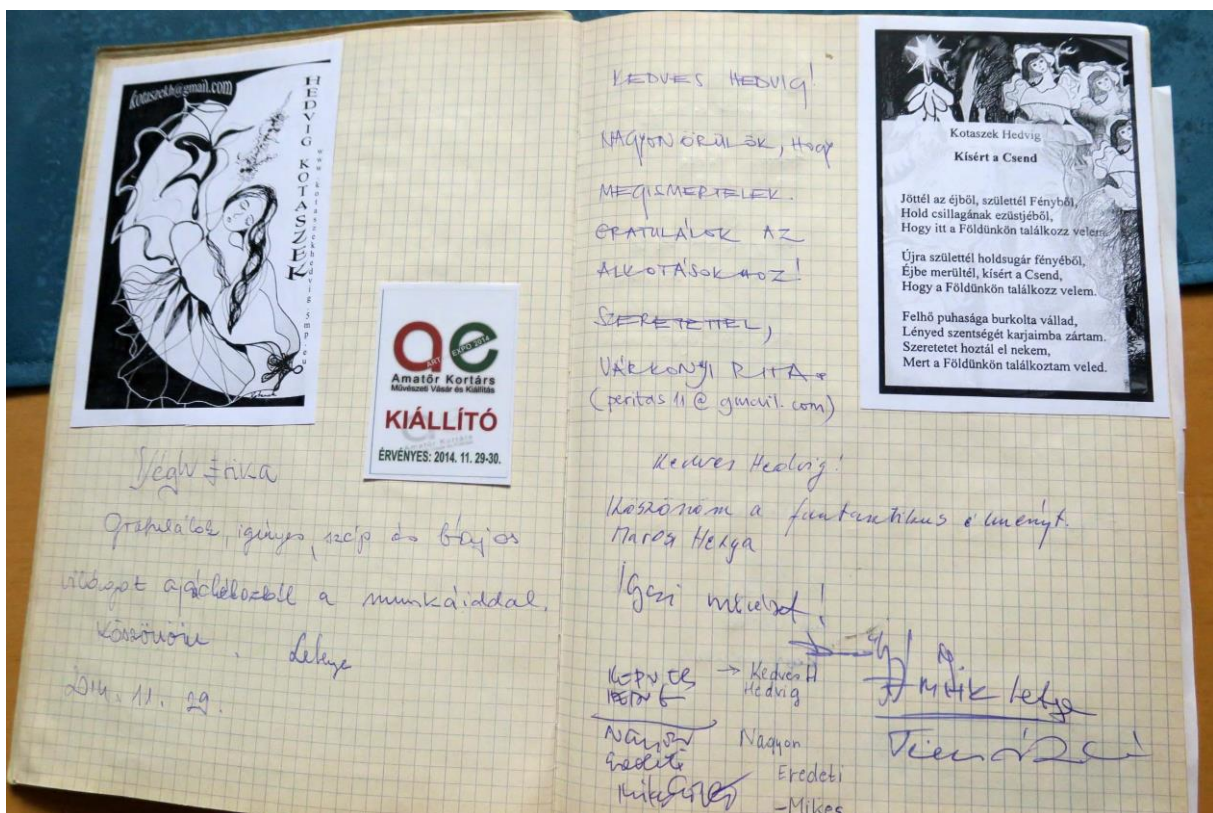 kotaszekh@gmail.com
HEDVIG KOTASZEK
www.kotaszekhedvig.5mp.eu
ae
ART EXPO 2014
Amatőr Kortárs
Művészeti Vásár és Kiállítás
KIÁLLÍTÓ
ÉRVÉNYES: 2014. 11. 29-30.
Végh Erika
Gratulálok, igényes, szép és bájos
világot ajándékoztál a munkáiddal.
Köszönöm.
2014. 11. 29.
KEDVES HEDVIG!
NAGYON ÖRÜLÖK, HOGY
MEGISMERTELEK.
GRATULÁLOK AZ
ALKOTÁSOKHOZ!
SZERETETTEL,
VÁRKONYI RITA
(peritas11@gmail.com)
Kedves Hedvig!
Köszönöm a fantasztikus élményt.
Marosi Helga
Igazi művészet!
KEDVES → Kedves H
Hedvig
Nagyon
Eredeti
-Mikes
Kotaszek Hedvig
Kísért a Csend
Jöttél az éjből, születtél Fényből,
Hold csillagának ezüstjéből,
Hogy itt a Földünkön találkozz velem.
Újra születtél holdsugár fényéből,
Éjbe merültél, kísért a Csend,
Hogy a Földünkön találkozz velem.
Felhő puhasága burkolta vállad,
Lényed szentségét karjaimba zártam.
Szeretetet hoztál el nekem,
Mert a Földünkön találkoztam veled.